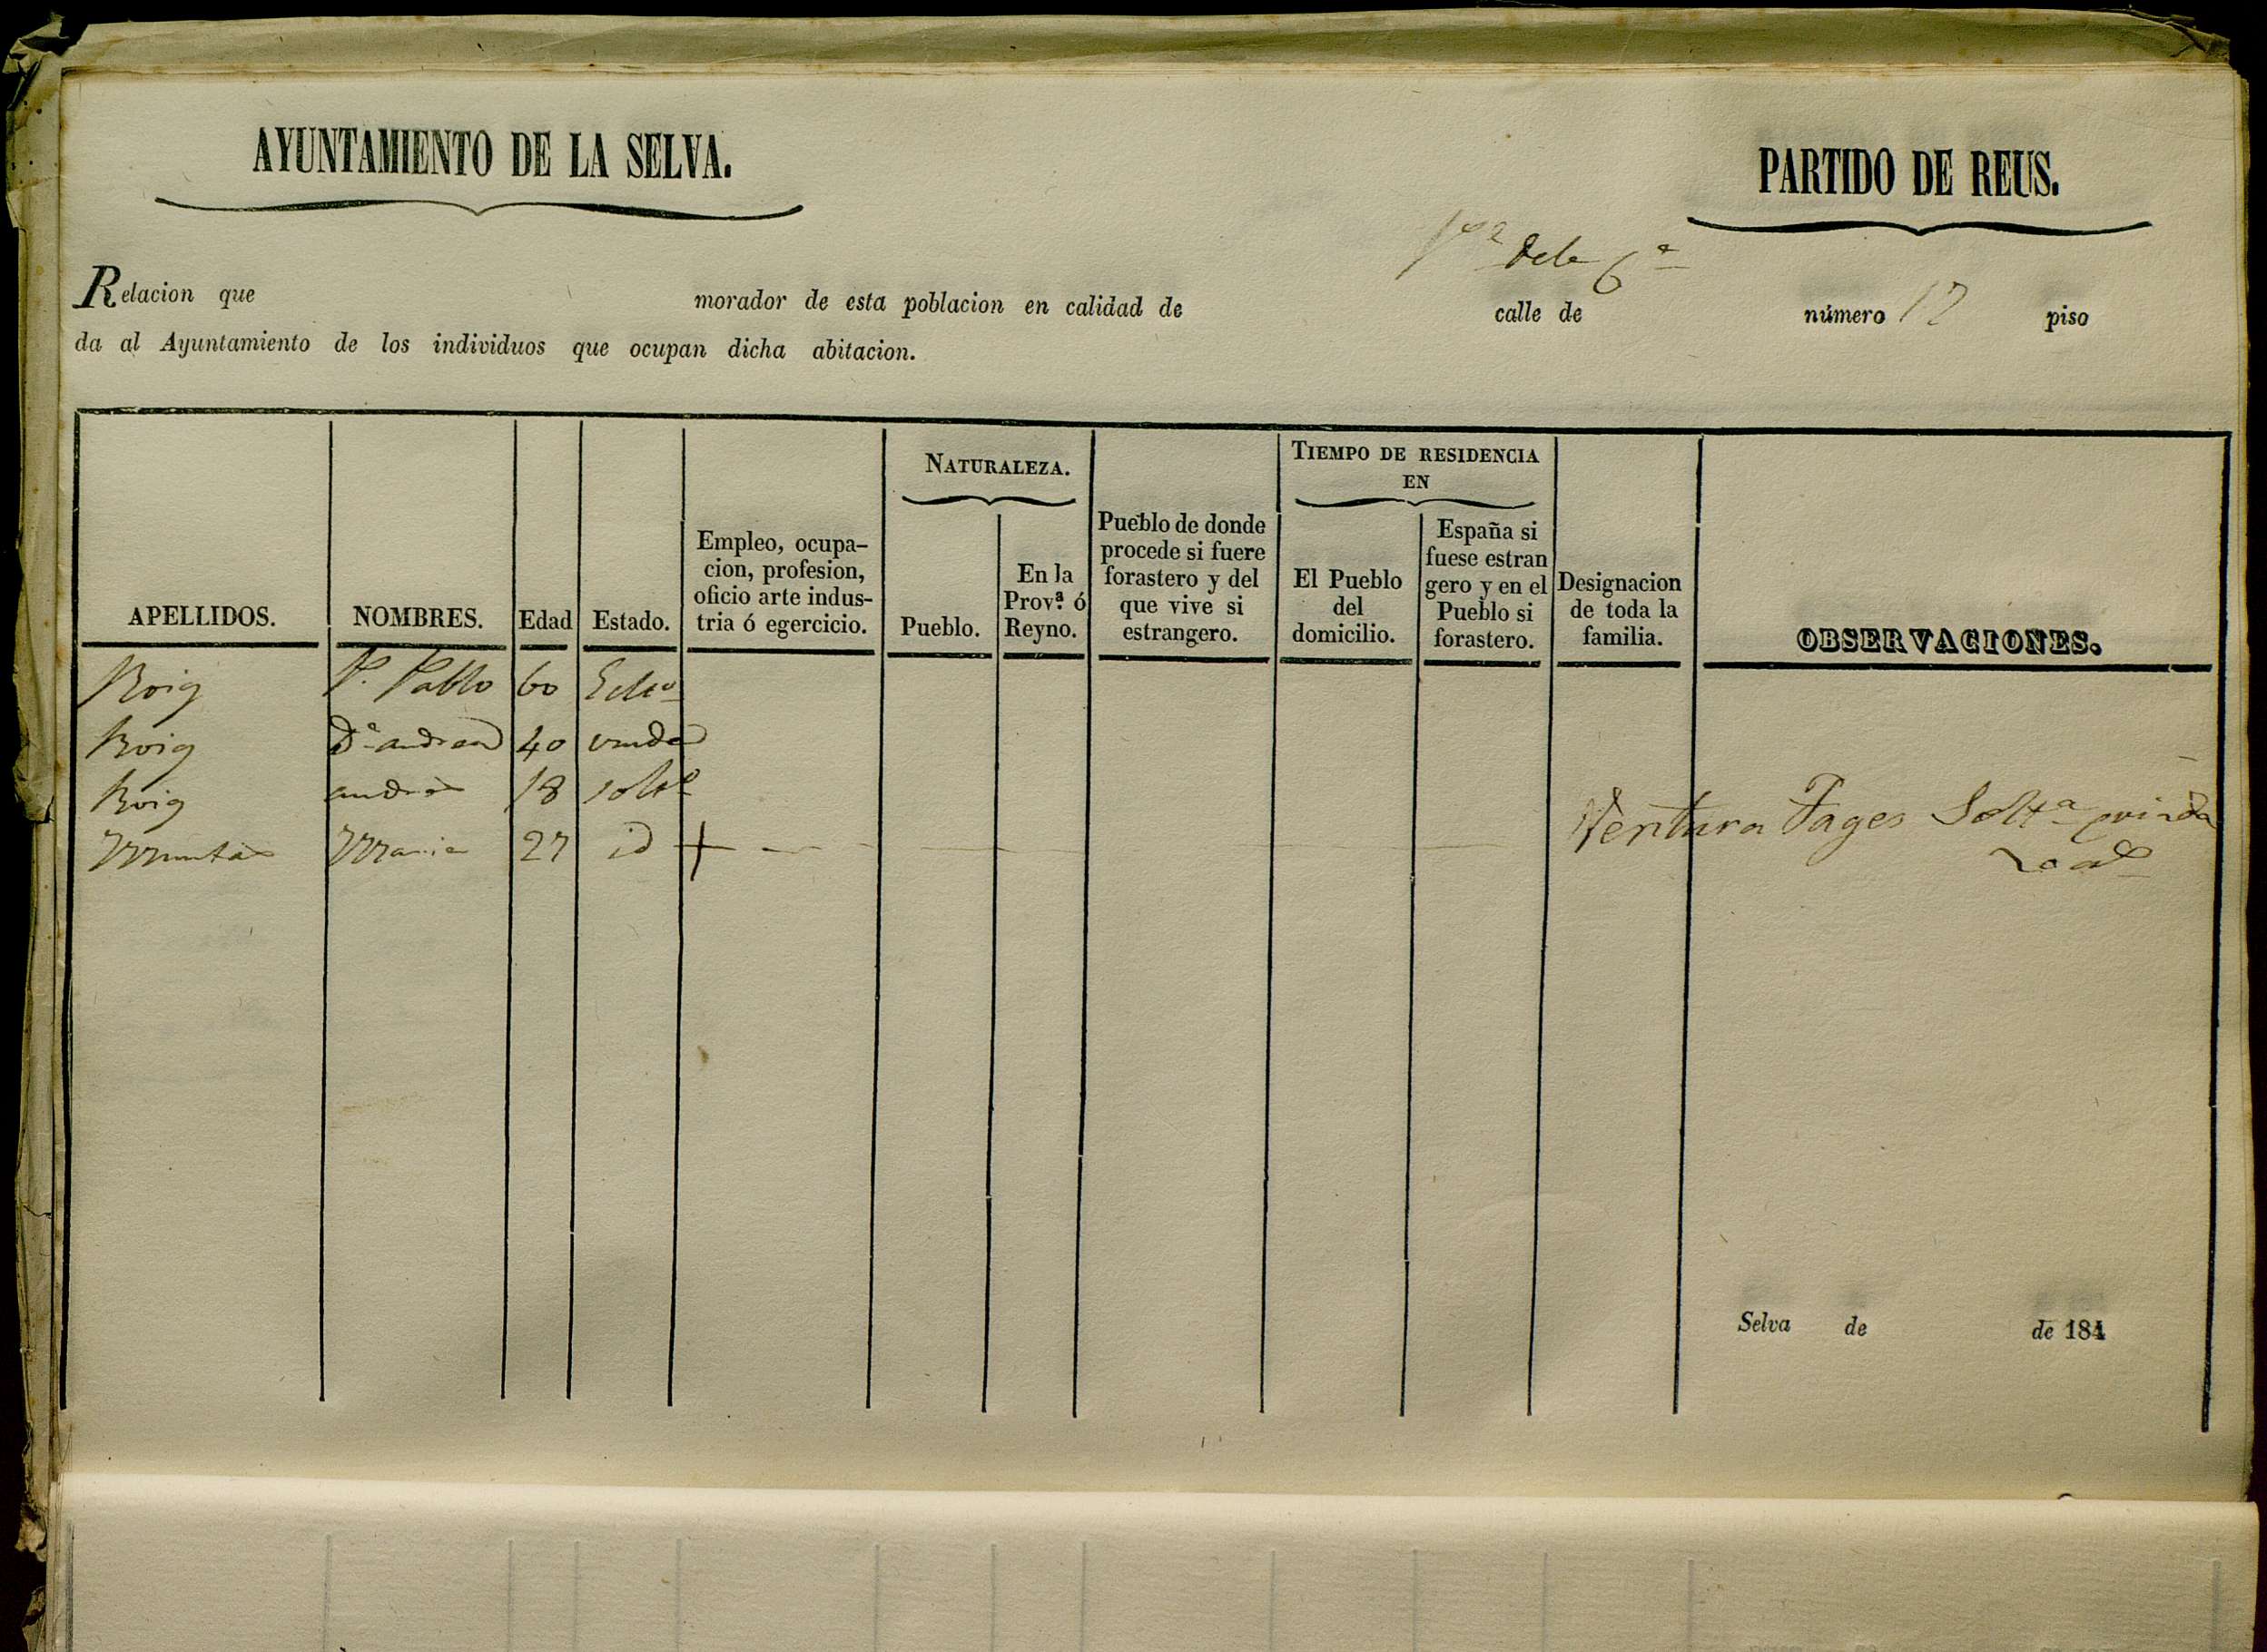 AYUNTAMIENTO DE LA SELVA.
PARTIDO DE REUS.
Relacion que morador de esta poblacion en calidad de calle de número 12 piso
da al Ayuntamiento de los individuos que ocupan dicha abitacion.
NATURALEZA.
TIEMPO DE RESIDENCIA
EN
APELLIDOS.
NOMBRES.
Edad
Estado.
Empleo, ocupa-
cion, profesion,
oficio arte indus-
tria ó egercicio.
Pueblo.
En la
Prov.ª ó
Reyno.
Pueblo de donde
procede si fuere
forastero y del
que vive si
estrangero.
El Pueblo
del
domicilio.
España si
fuese estran
gero y en el
Pueblo si
forastero.
Designacion
de toda la
familia.
OBSERVACIONES.
Roig Pablo 60
Roig Dª andrea 40 viuda
Roig andrés 18 solt
Maria 27 id
Ventura Fages Soltª
Selva de de 184